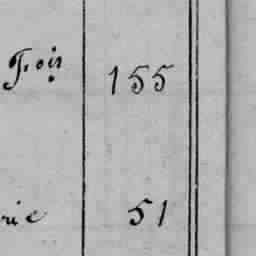 Fois 155
rie 51